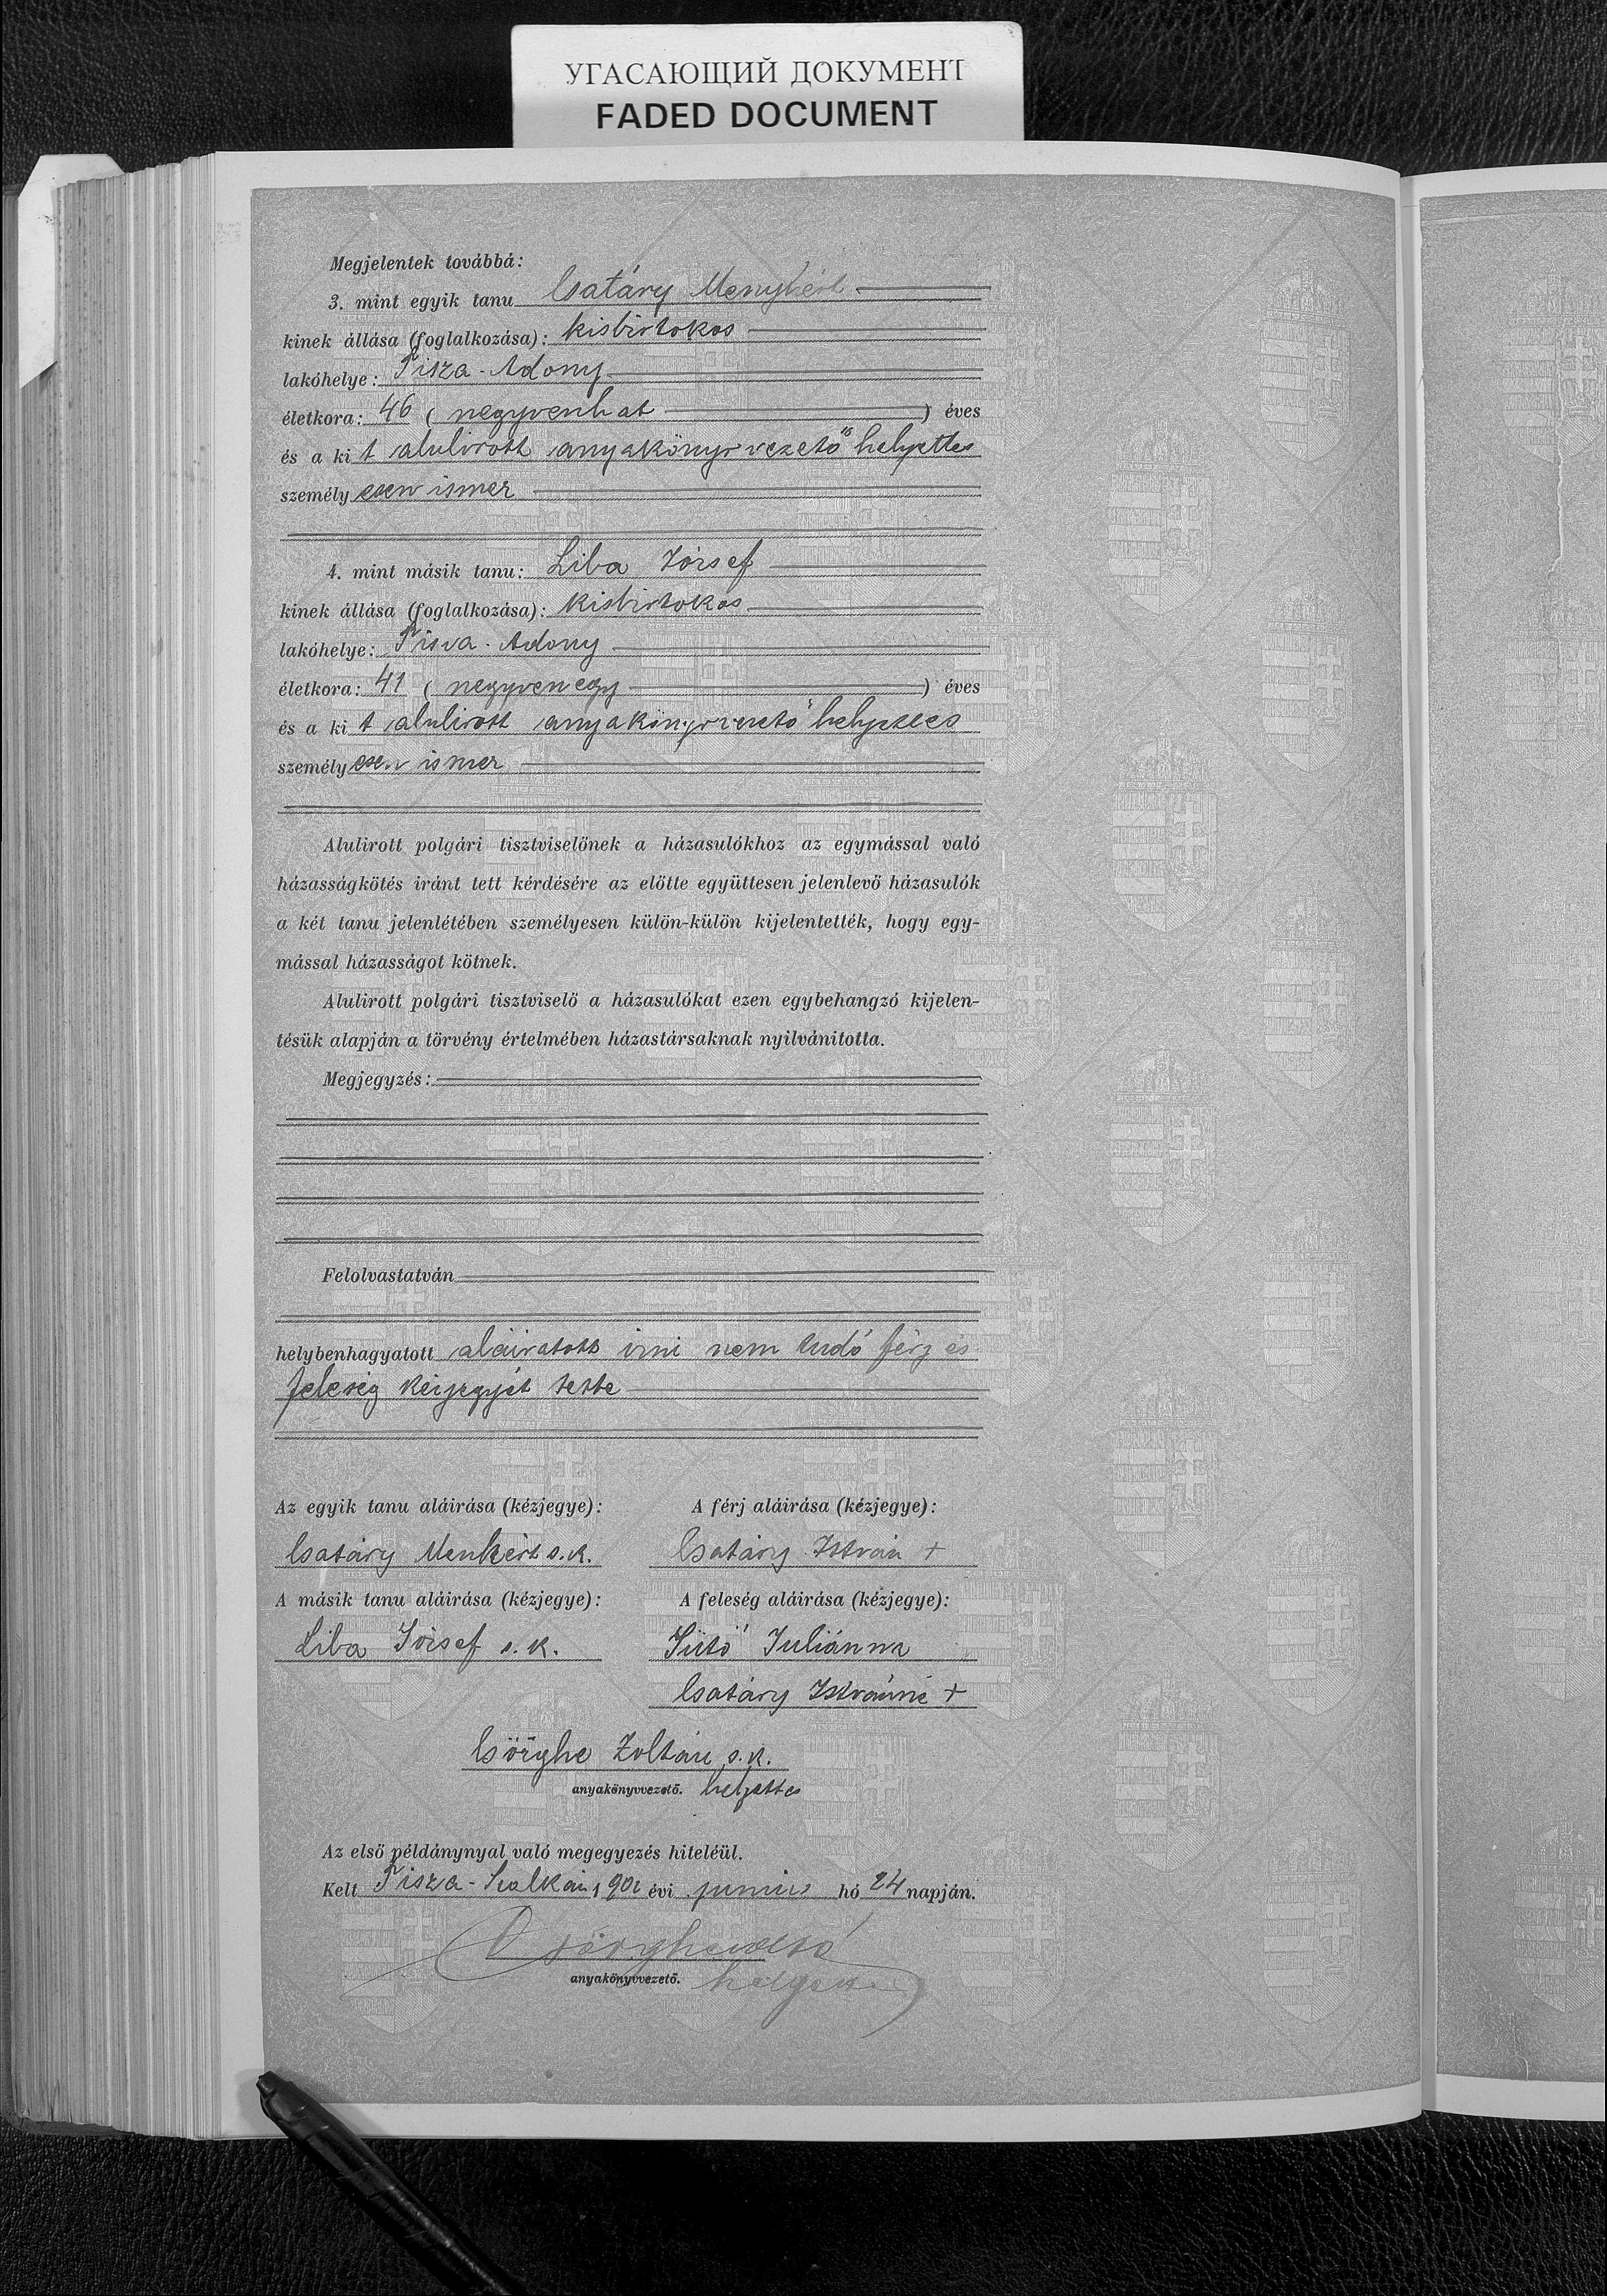 УГАСАЮЩИЙ ДОКУМЕНТ
FADED DOCUMENT
Megjelentek továbbá:
3. mint egyik tanu Csatáry Menyhért
kinek állása (foglalkozása): kisbirtokos
lakóhelye: Tisza-Adony
életkora: 46 (negyvenhat) éves
és a kit alulirott anyakönyvvezető helyettes
személyesen ismer
4. mint másik tanu: Liba József
kinek állása (foglalkozása): kisbirtokos
lakóhelye: Tisza-Adony
életkora: 41 (negyvenegy) éves
és a kit alulirott anyakönyvvezető helyettes
személyesen ismer
Alulirott polgári tisztviselőnek a házasulókhoz az egymással való
házasságkötés iránt tett kérdésére az előtte együttesen jelenlevő házasulók
a két tanu jelenlétében személyesen külön-külön kijelentették, hogy egy-
mással házasságot kötnek.
Alulirott polgári tisztviselő a házasulókat ezen egybehangzó kijelen-
tésük alapján a törvény értelmében házastársaknak nyilvánitotta.
Megjegyzés:
Felolvastatván
helybenhagyatott aláiratott irni nem tudó férj és
feleség kézjegyét tette
Az egyik tanu aláirása (kézjegye): A férj aláirása (kézjegye):
Csatáry Menhért s.k. Csatáry István +
A másik tanu aláirása (kézjegye): A feleség aláirása (kézjegye):
Liba József s.k. Sütő Juliánna
Csatáry Istvánné +
Csörghe Zoltán s.k.
anyakönyvvezető. helyettes
Az első példánynyal való megegyezés hiteléül.
Kelt Tisza-Szalkán 1902 évi junius hó 24 napján.
anyakönyvvezető. helyettes